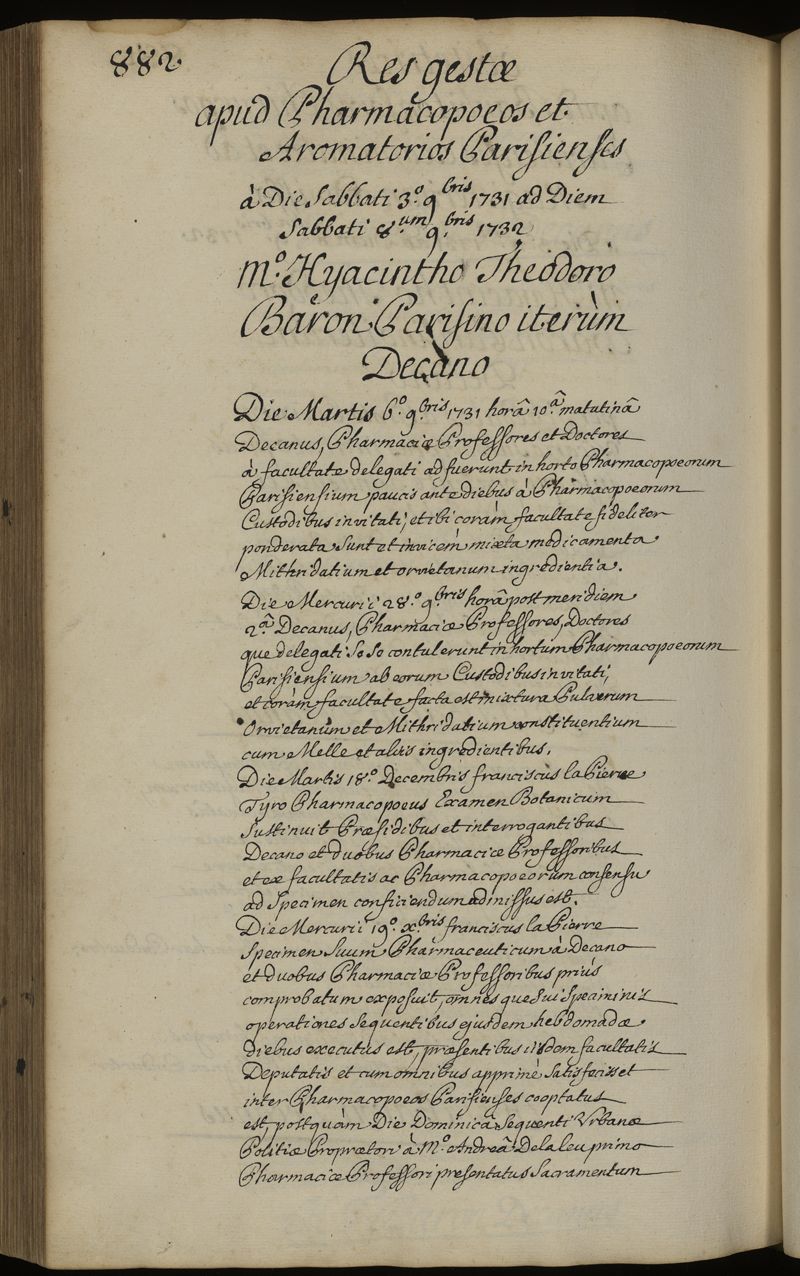 882.
Res gestæ
apud Pharmacopoeos et
Aromatorios Parisienses
à Die Sabbati 3.º 9bris 1731 ad Diem
Sabbati 8.um 9.bris 1732
M.º Hyacintho Theodoro
Baron Parisino iterùm
Decano
Die Martis 6.º 9.bris 1731 horâ 10.â matutinâ
Decanus, Pharmaciæ Professores et Doctores
à facultate delegati adfuerunt in horto Pharmacopoeorum
Parisiensium paucis ante diebus à Pharmacopoeorum
Custodibus invitati, et ibi coràm facultate fideliter
ponderata sunt et invicem mixta medicamenta
Mithridatium et orvietanum ingredientia.
Die Mercurii 28.º 9.bris horâ post meridiem
2.â Decanus, Pharmaciæ Professores, Doctores
que delegati se se contulerunt in hortum Pharmacopoeorum
Parisiensium ab eorum Custodibus invitati,
et coràm facultate facta est mixtura Pulverum
Orvietanum et Mithridatium constituentium
cum Melle et aliis ingredientibus.
Die Martis 18.º Decembris franciscus la Pierre
Tyro Pharmacopoeus Examen Botanicum
Sustinuit Præsidibus et interrogantibus
Decano et duobus Pharmaciæ Professoribus
et ex facultatis ac Pharmacopoeorum consensu
ad Specimen conficiendum admissus est.
Die Mercurii 19.º x.bris franciscus la Pierre
Specimen Suum Pharmaceuticum à Decano
et duobus Pharmaciæ Professoribus priùs
comprobatum exposuit, omnes que Sui Speciminis
operationes Sequentibus ejusdem hebdomadæ
diebus executus est, præsentibus iisdem facultatis
Deputatis et cum omnibus apprimè Satisfecisset
inter Pharmacopoeos Parisienses cooptatus
est, postquàm Die Dominicâ Sequenti Urbanæ
Politiæ Proprætori à M.º Andreâ De la leu primo
Pharmaciæ Professori presentatus Sacramentum